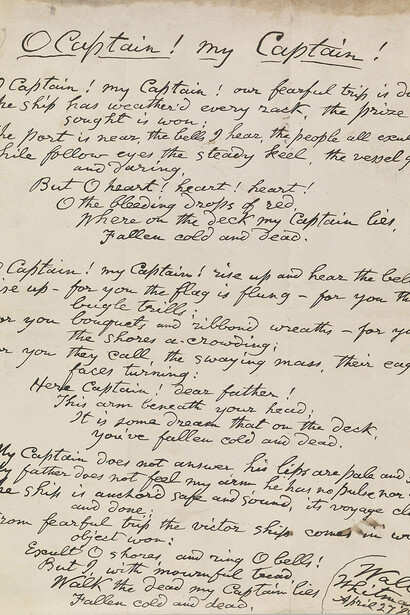 O Captain! my Captain!
Captain! my Captain! our fearful trip is
ship has weather'd every rack, the prize
sought is won;
The port is near, the bells I hear, the people all
follow eyes the steady keel, the vessel
and daring,
But O heart! heart! heart!
O the bleeding drops of red,
Where on the deck my Captain lies,
Fallen cold and dead.
Captain! my Captain! rise up and hear the
up - for you the flag is flung - for you
bugle trills;
you bouquets and ribbon'd wreaths - for
the shores a-crowding;
you they call, the swaying mass, their
faces turning:
Here Captain! dear father!
This arm beneath your head;
It is some dream that on the deck,
You've fallen cold and dead.
My Captain does not answer, his lips are pale and
My father does not feel my arm he has no pulse nor
ship is anchor'd safe and sound, its voyage
and done;
From fearful trip the victor ship comes in
object won:
Exult O shores, and ring O bells!
But I, with mournful tread,
Walk the deck my Captain lies
Fallen cold and dead.
Walt
Whitman
April 27